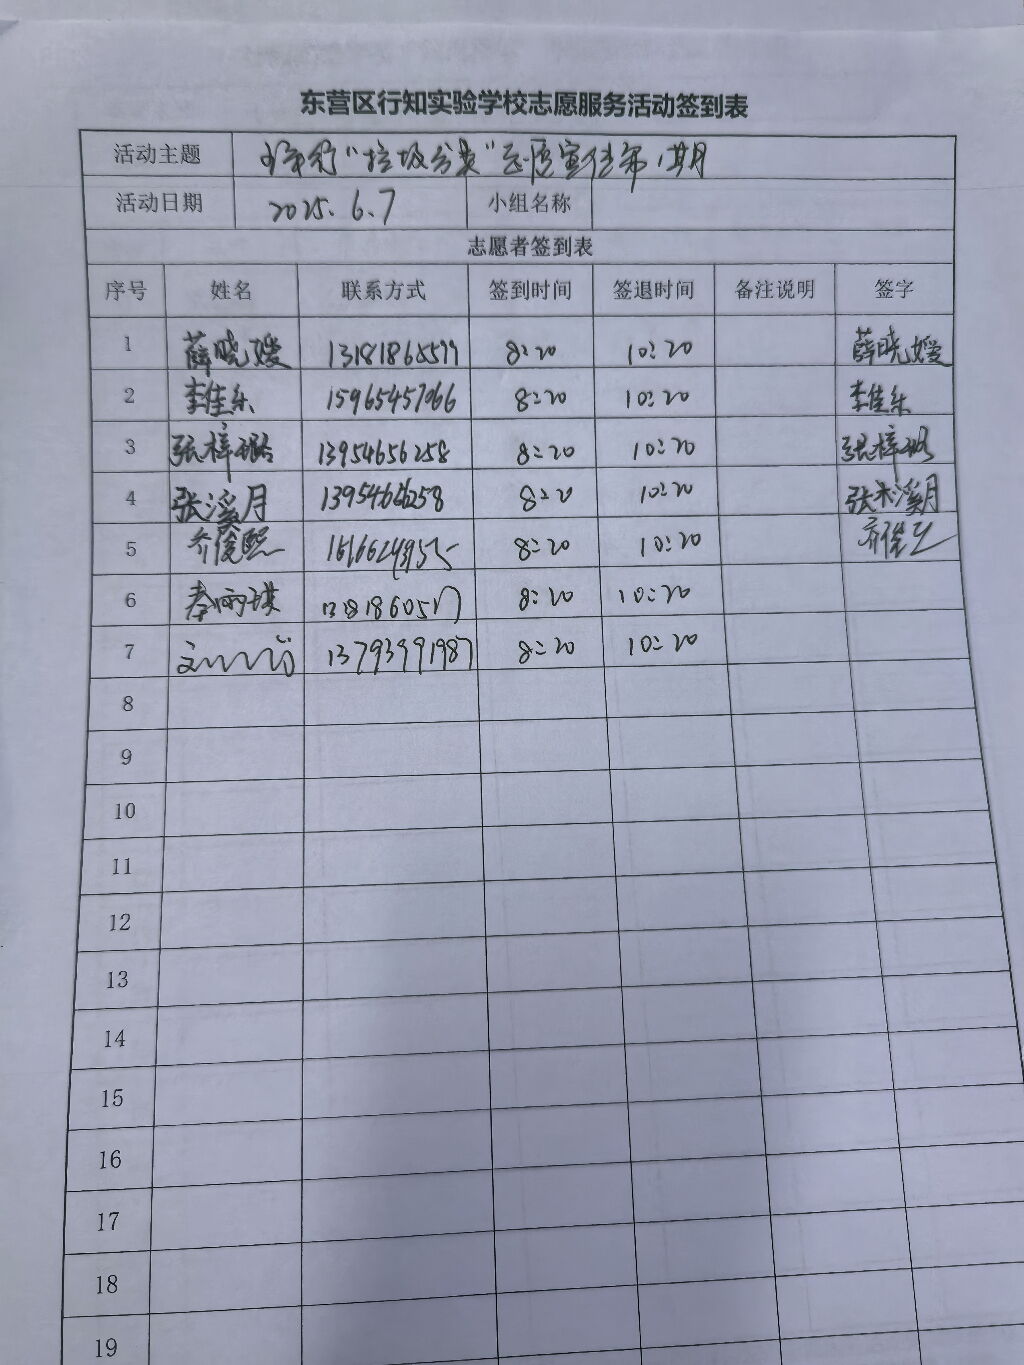 东营区行知实验学校志愿服务活动签到表
活动主题 "垃圾分类"志愿宣传第1期
活动日期 2025.6.7 小组名称
志愿者签到表
序号 姓名 联系方式 签到时间 签退时间 备注说明 签字
1 薛晓媛 8:20 10:20 薛晓媛
2 李佳乐 8:20 10:20 李佳乐
3 张梓璐 13954656258 8:20 10:20 张梓璐
4 张溪月 8:20 10:20 张溪月
5 齐俊熙 8:20 10:20
6 秦雨琪 8:20 10:20
7 13793991987 8:20 10:20
8
9
10
11
12
13
14
15
16
17
18
19